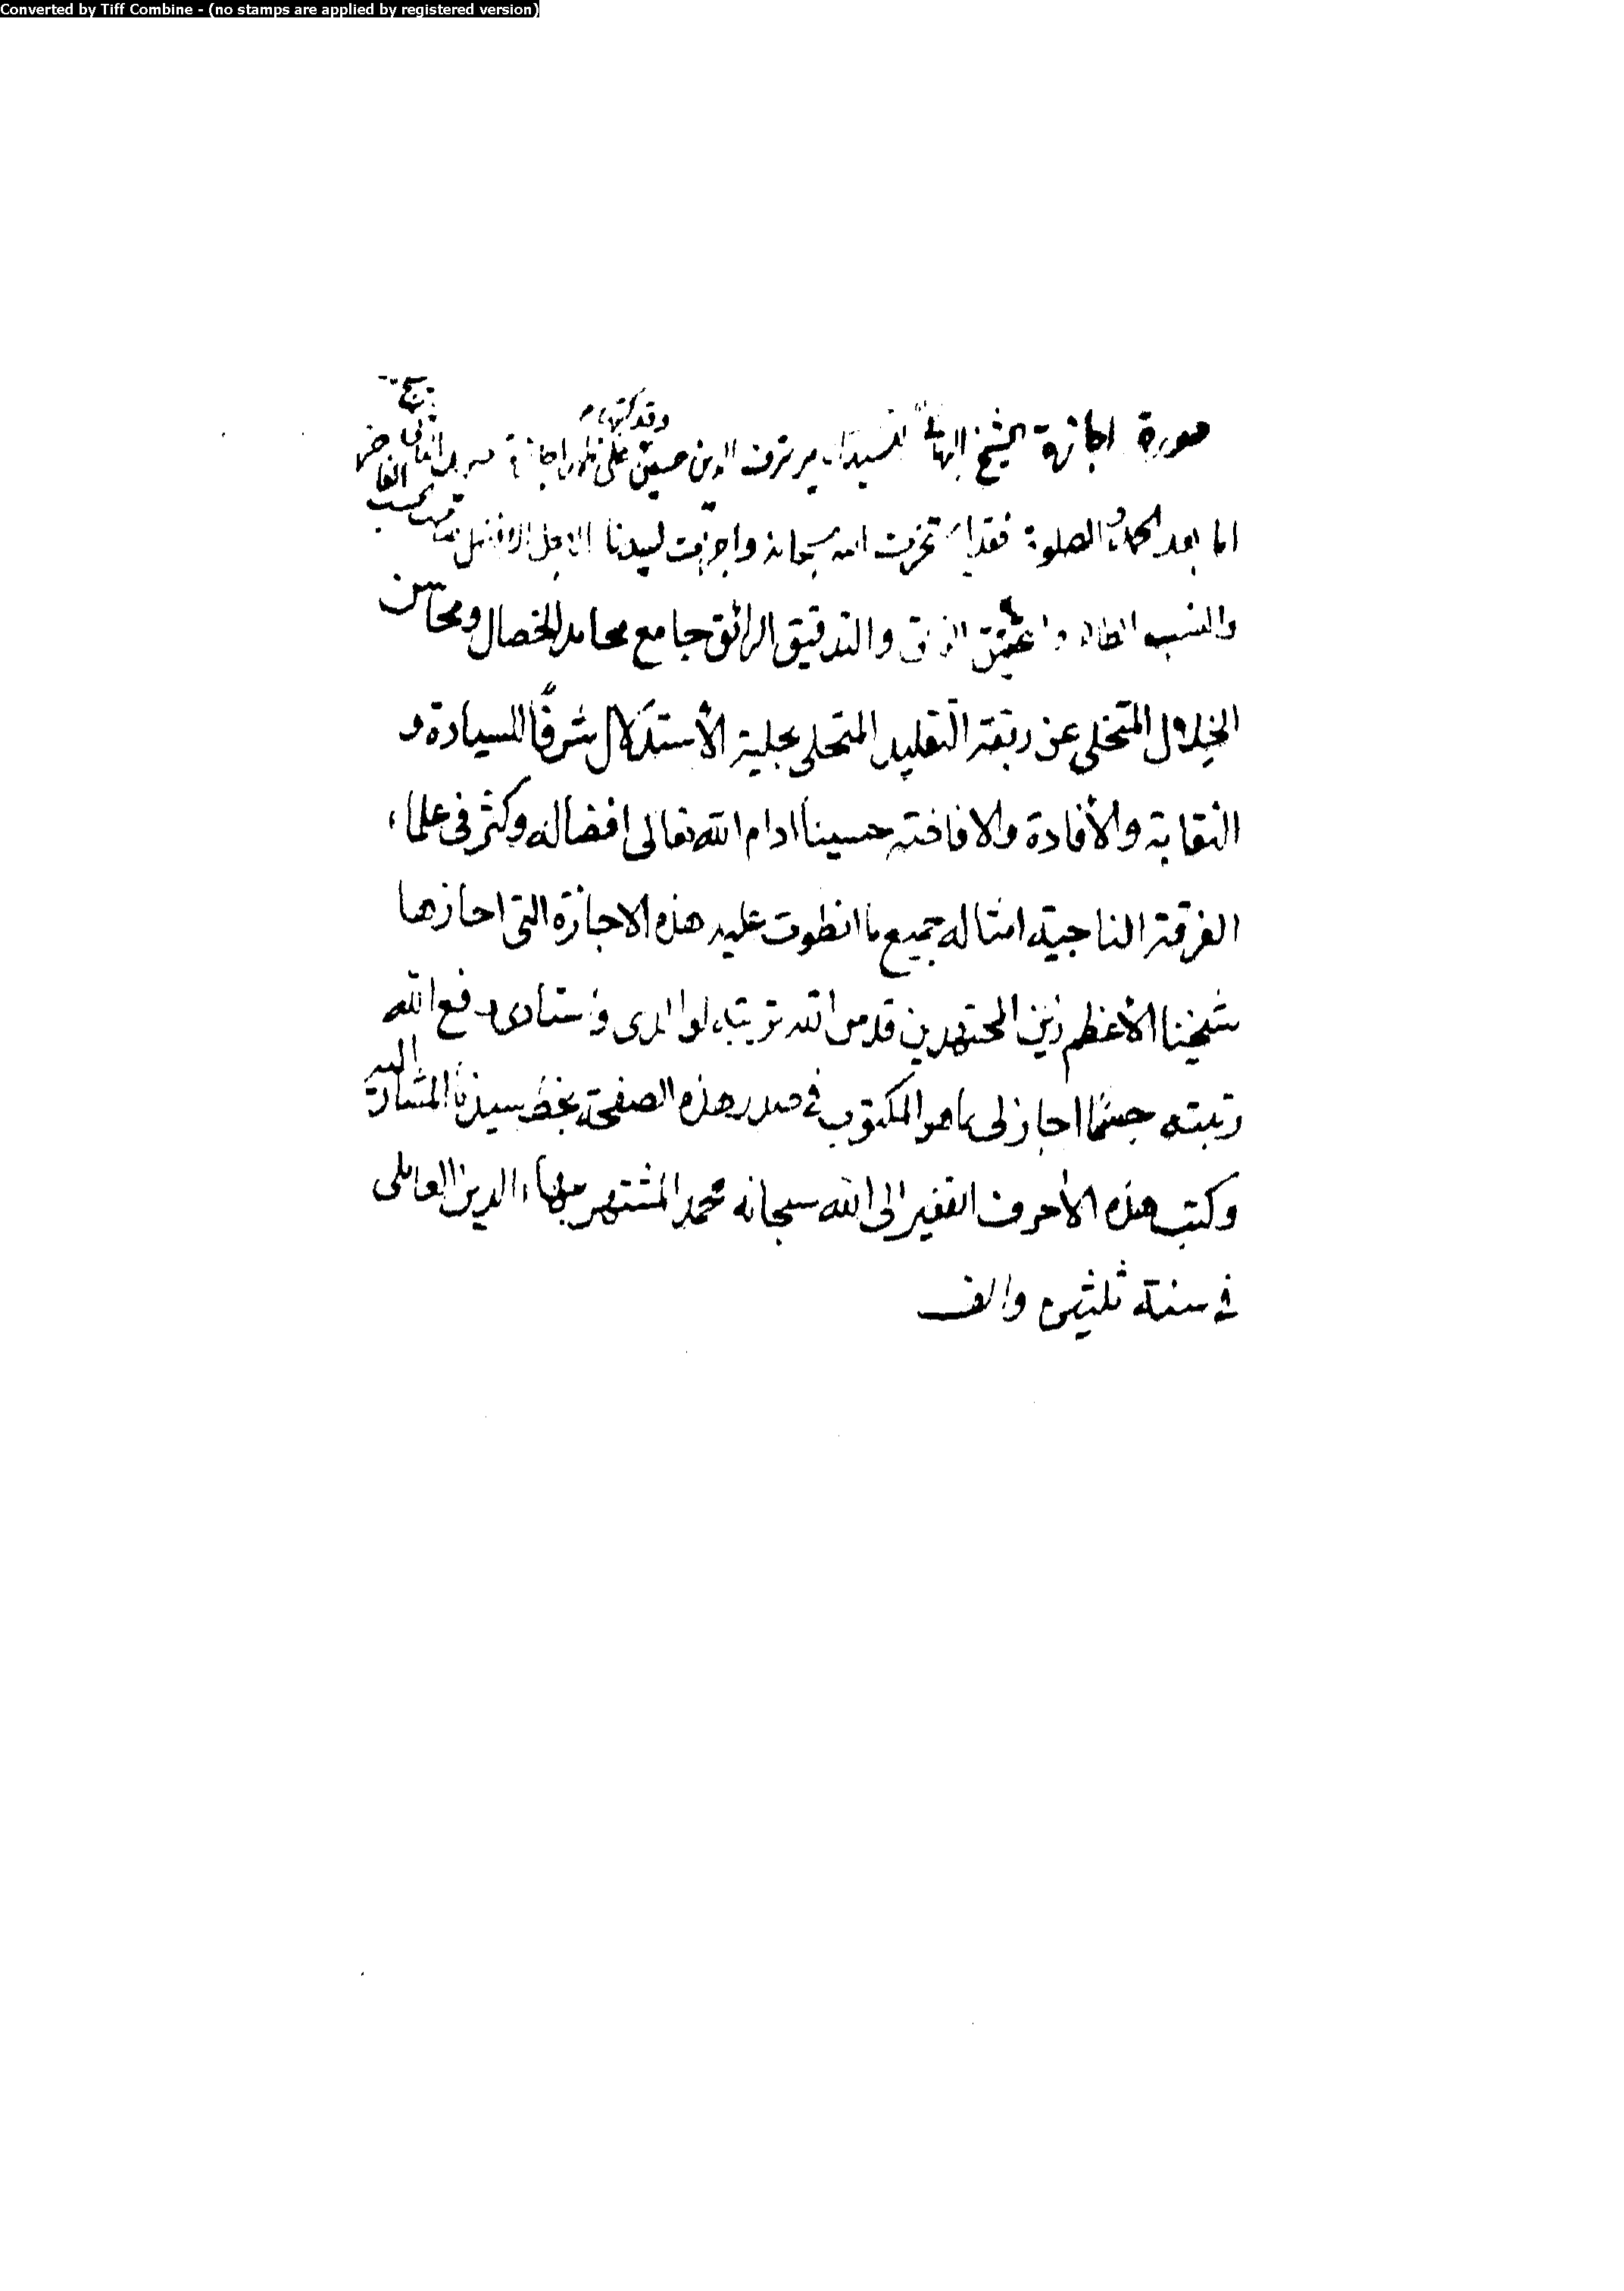 Converted by Tiff Combine - (no stamps are applied by registered version)
صورة اجازة الشيخ البهائى للسيد مير شرف الدين حسين على ظهر اجازة
وقد كتبها
اما بعد الحمد والصلوة فقد استخرت الله سبحانه واجزت لسيدنا الاجل الافضل
والنسب الطاهر والتدقيق الرائق جامع محامد الخصال ومحاسن
الخلال المتخلى عن ربقة التقليد المتحلى بحلية الأستدلال شرفًا للسيادة و
النقابة والأفادة والافاضة حسيناً ادام الله تعالى افضاله وكثر فى علماء
الفرقة الناجية امثاله جميع ما انطوت عليه هذه الاجازة التى اجازها
شيخنا الأعظم زين المجتهدين قدس الله تربته لوالدى واستادى رفع الله
رتبته حسبما اجاز لى ما هو المكتوب في صدر هذه الصفحة بخط سيدنا المشار اليه
وكتب هذه الأحرف الفقير الى الله سبحانه محمد المشتهر ببهاء الدين العاملى
في سنة ثلثين والف